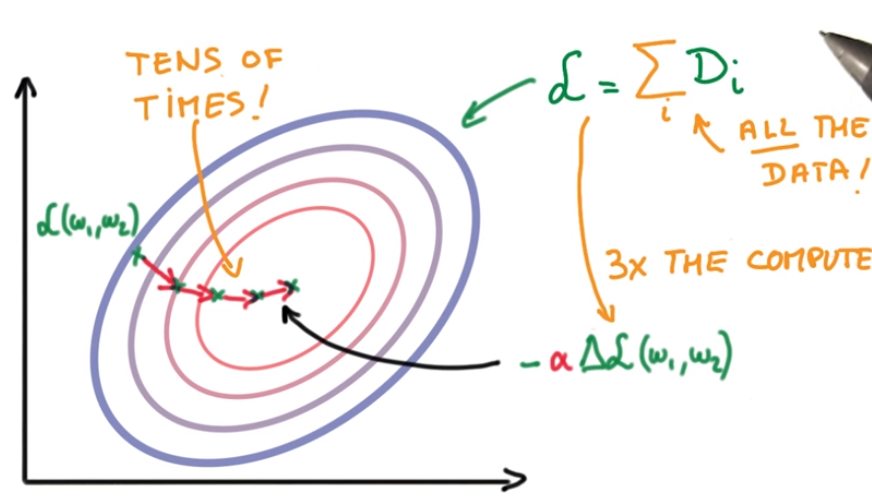 TENS OF
TIMES!
ℒ = Σ Dᵢ
i
ALL THE
DATA!
ℒ(ω₁,ω₂)
3x THE COMPUTE
- α Δℒ(ω₁,ω₂)